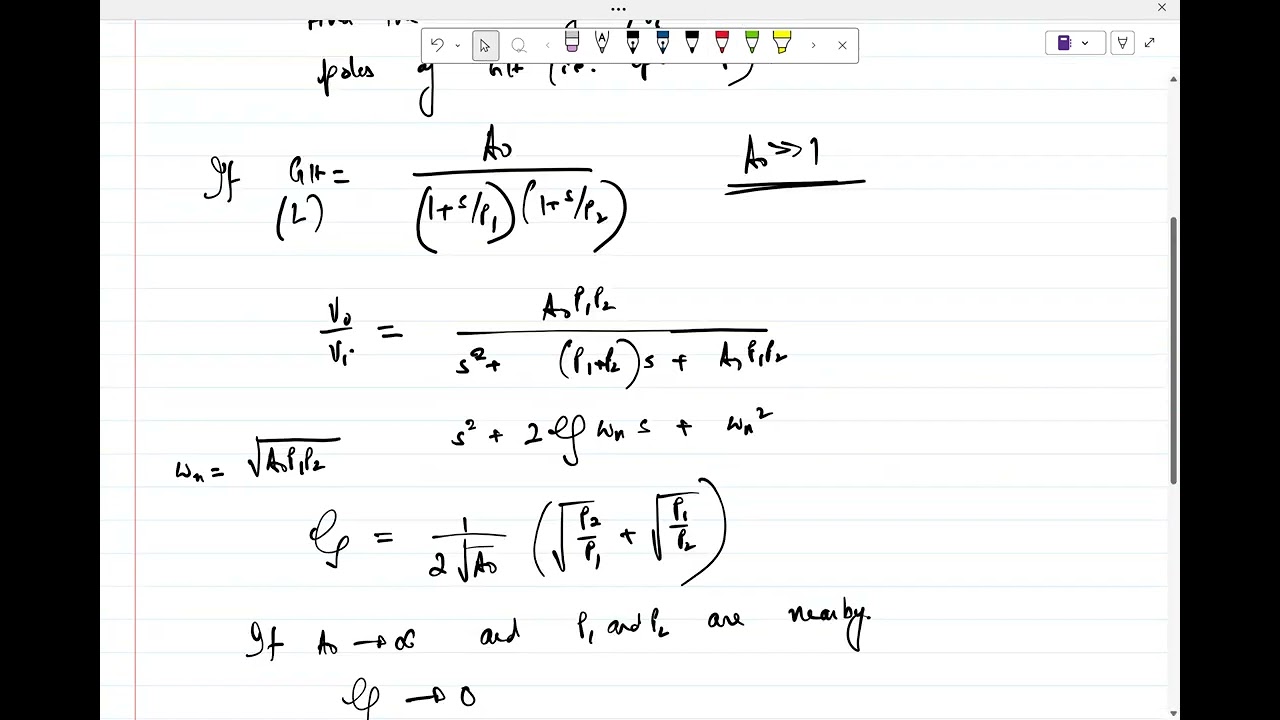 poles of GH (i.e.
If GH = A₀ / (1+s/P₁)(1+s/P₂) A₀ >> 1
(L)
V₀/Vᵢ = A₀P₁P₂ / s² + (P₁+P₂)s + A₀P₁P₂
s² + 2ξωₙs + ωₙ²
ωₙ = √A₀P₁P₂
ξ = 1/2√A₀ (√P₂/P₁ + √P₁/P₂)
If A₀ → ∞ and P₁ and P₂ are nearby.
ξ → 0